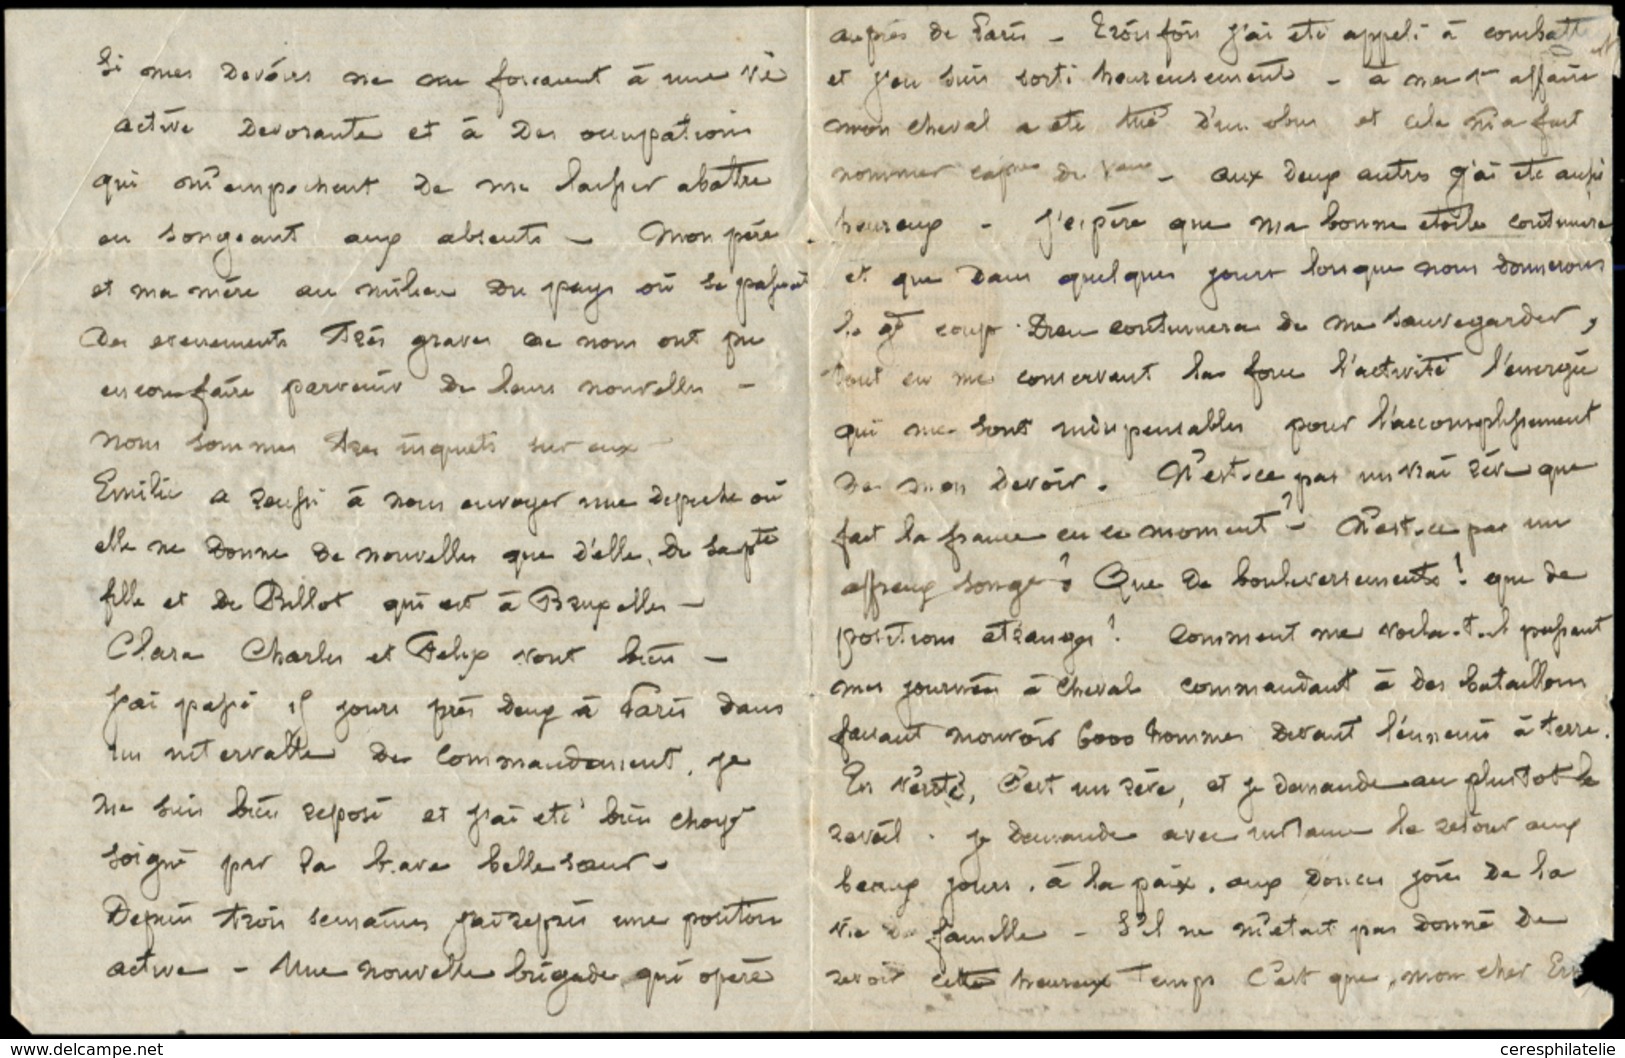 Si mes devoirs ne me forcaient à une vie
active devorante et à des occupations
qui m'empechent de me laisser abattre
en songeant aux absents — Mon père
et ma mère au milieu du pays où se passent
des evenements très graves ne nous ont pu
encore faire parvenir de leurs nouvelles —
nous sommes très inquiets sur eux
Emilie a reussi à nous envoyer une depeche où
elle ne donne de nouvelles que d'elle, de sa pte
fille et de Billot qui est à Bruxelles —
Clara Charles et Felix vont bien —
J'ai passé jours près deux à Paris dans
un intervalle de commandement, je
me suis bien reposé et j'ai eté bien choyé
soigné par la brave belle sœur —
Depuis trois semaines j'ai repris une position
active — Une nouvelle brigade qui opère
auprès de Paris — Trois fois j'ai eté appelé à combattre
et j'en suis sorti heureusement — à ma 1re affaire
mon cheval a eté tué d'un obus et cela m'a fait
nommer de — aux deux autres j'ai eté aussi
heureux — J'espère que ma bonne etoile continuera
et que dans quelques jours lorsque nous donnerons
le gd coup Dieu continuera de me sauvegarder,
tout en me conservant la force l'activité l'energie
qui me sont indispensables pour l'accomplissement
de mon devoir. N'est-ce pas un vrai rêve que
fait la france en ce moment? — N'est-ce pas un
affreux songe? Que de bouleversements! que de
positions etranges! Comment me voila-t-il passant
mes journées à cheval commandant à des bataillons
faisant mouvoir 6000 hommes devant l'ennemi à terre.
En verité, C'est un rêve, et je demande au plustot le
reveil. je demande avec instance le retour aux
beaux jours, à la paix, aux douces joies de la
vie de famille — S'il ne m'etait pas donné de
revoir cette heureux temps C'est que, mon cher
www.delcampe.net
ceresphilatelie